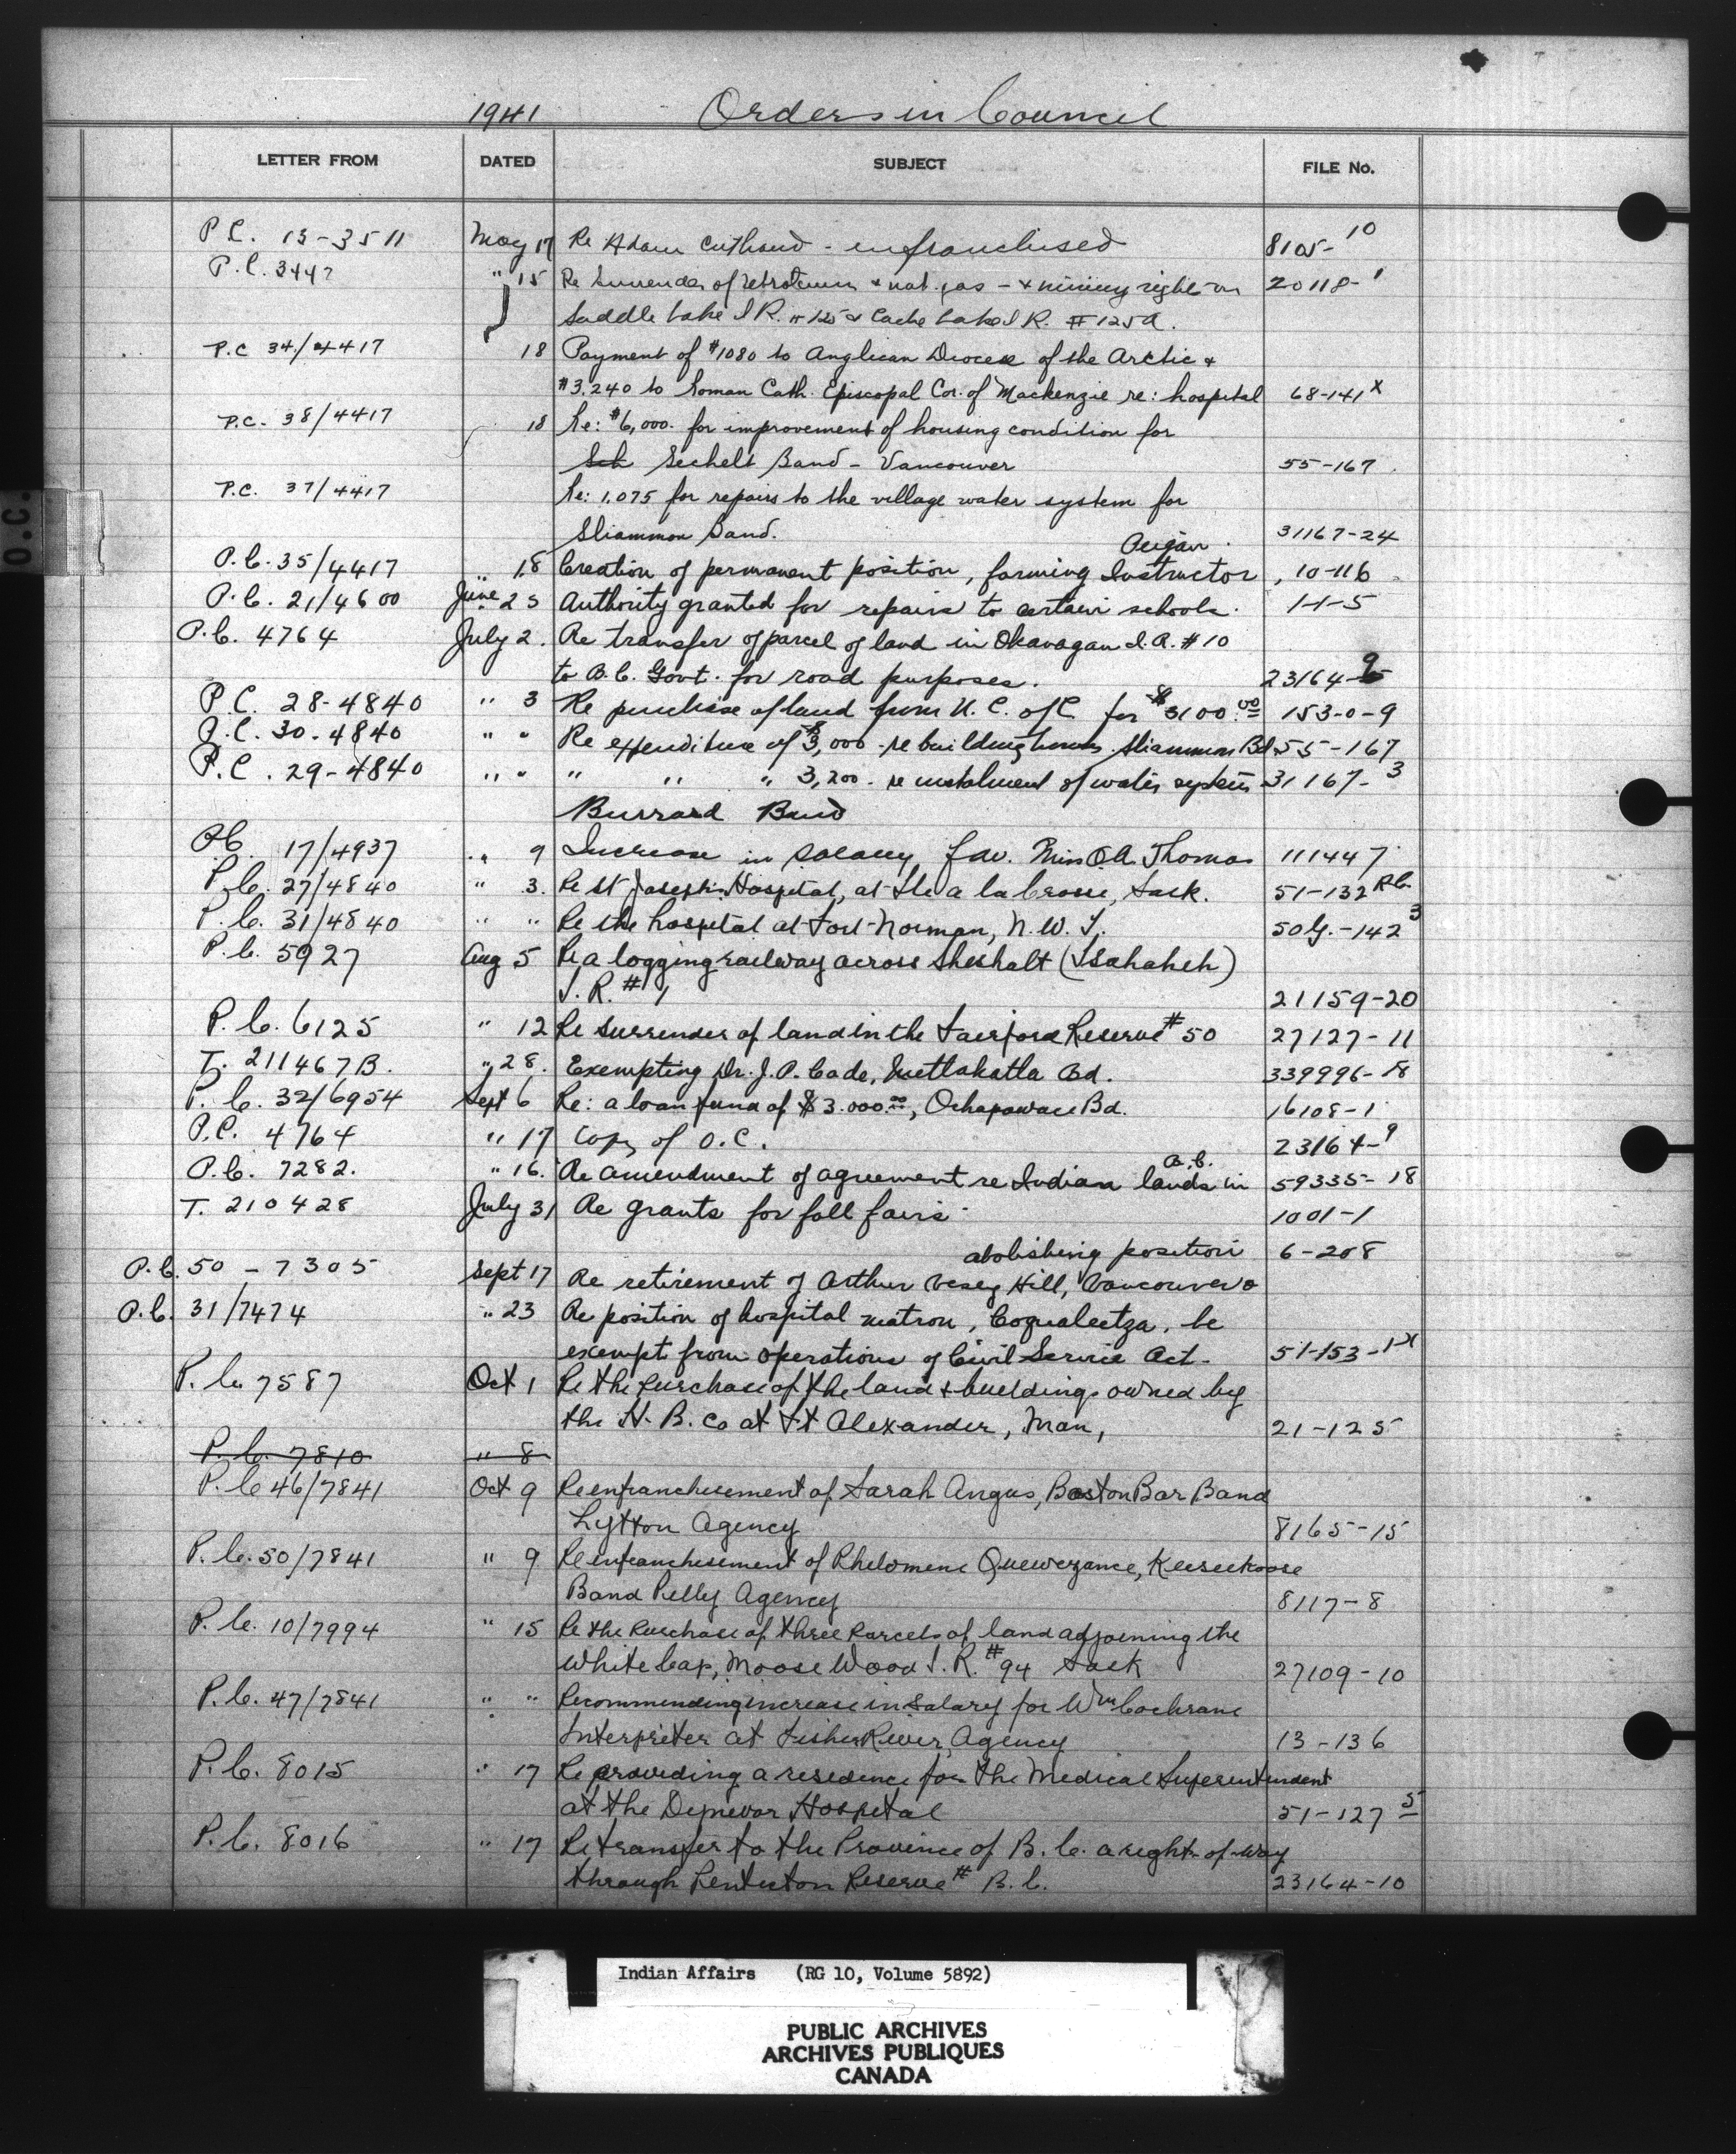 1941 Orders in Council
LETTER FROM DATED SUBJECT FILE No.
P.C. 13-3511 May 17 Re Adam - enfranchised 8105-10
P.C. 3447 " 15 Re Surrender of Petroleum & nat. gas - & mining rights on 20118-1
Saddle Lake I R. # 125 & Cache Lake I R. # 125A.
P.C 34/4417 18 Payment of $1080 to Anglican Diocese of the Arctic &
$3,240 to Roman Cath. Episcopal Cor. of Mackenzie re: hospital 68-141 x
P.C. 38/4417 18 Re: $6,000. for improvement of housing condition for
Sch Sechelt Band - Vancouver 55-167
P.C. 37/4417 Re: 1,075 for repairs to the village water system for
Sliammon Band. 31167-24
Peigan
P.C. 35/4417 " 18 Creation of permanent position, farming Instructor, 10-116
P.C. 21/4600 June 25 Authority granted for repairs to certain schools. 1-1-5
P.C. 4764 July 2. Re transfer of parcel of land in Okanagan I.R. # 10
to B.C. Govt. for road purposes. 23164-9
P.C. 28-4840 " 3 Re purchase of land from U. C. of C. for $3100.00 153-0-9
P.C. 30-4840 " " Re expenditure of $3,000 - re building houses Sliammon Bd. 55-167
P.C. 29-4840 " " " " " 3,200 - re instalment of water system 31167-3
Burrard Band
PC 17/4937 " 9 Increase in salary, fav. Miss O.A. Thomas 111447
P.C. 27/4840 " 3. Re St Joseph's Hospital, at Ile a la Crosse, Sask. 51-132 RC
P.C. 31/4840 " " Re the hospital at Fort-Norman, N.W.T. 50 G.-142 3
P.C. 5927 Aug 5 Re a logging railway across Sheshalt (Tsahaheh)
I. R. # 1 21159-20
P.C. 6125 " 12 Re surrender of land in the Fairford Reserve # 50 27127-11
T. 211467B. " 28. Exempting Dr. J. P. Cade, Metlakatla Bd. 339996-18
P.C. 32/6954 Sept 6 Re: a loan fund of $3.000.00, Ochapowace Bd. 16108-1
P.C. 4764 " 17 Copy of O.C. 23164-9
B.C.
P.C. 7282. " 16. Re amendment of agreement re Indian lands in 59335-18
T. 210428 July 31 Re grants for fall fairs 1001-1
abolishing position 6-208
P.C. 50-7305 Sept 17 Re retirement of Arthur Vesey Hill, Vancouver
P.C. 31/7474 " 23 Re position of hospital matron, Coqualeetza, be
exempt from operations of Civil Service Act. 51-153-1x
P.C. 7587 Oct 1 Re the Purchase of the land & buildings owned by
the H. B. Co at Ft Alexander, Man, 21-125
P.C. 7810 " 8
P.C 46/7841 Oct 9 Re enfranchisement of Sarah Angus, Boston Bar Band
Lytton Agency 8165-15
P.C. 50/7841 " 9 Re enfranchisement of Philomene Quewezance, Keeseekoose
Band Pelly Agency 8117-8
P.C. 10/7994 " 15 Re the Purchase of three Parcels of land adjoining the
White Cap, Moose Wood I. R. # 94 Sask 27109-10
P.C. 47/7841 " " Recommending increase in Salary for Wm Cochrane
Interpreter at Fisher River, Agency 13-136
P.C. 8015 " 17 Re providing a residence for the Medical Superintendent
at the Dynevor Hospital 51-127 5
P.C. 8016 " 17 Re transfer to the Province of B.C. a right-of-way
through Penticton Reserve # B.C. 23164-10
O.C.
Indian Affairs (RG 10, Volume 5892)
PUBLIC ARCHIVES
ARCHIVES PUBLIQUES
CANADA